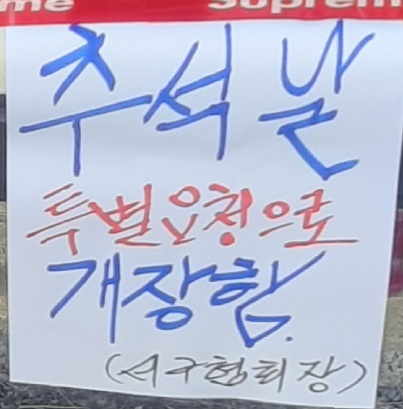 me Suprem
추석날
특별요청으로
개장함.
(서구협회장)